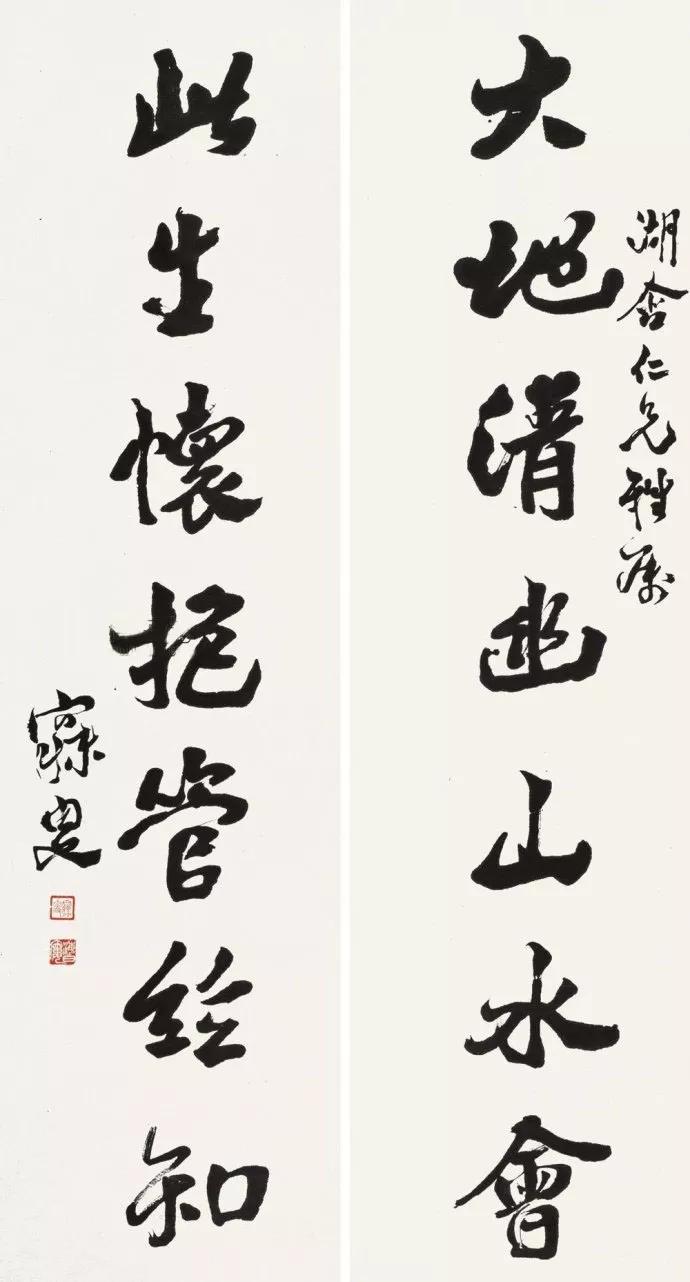 湖仁兄雅属
大地清幽山水會
此生懷抱管絃知
寐叟